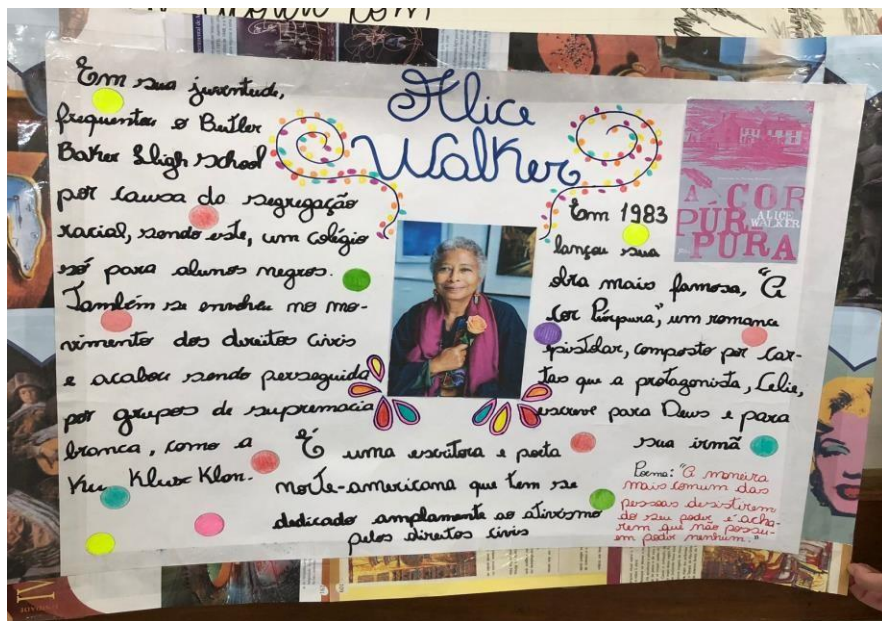 Alice
Walker
Em sua juventude,
frequentou o Butler
Baker High School
por causa da segregação
racial, sendo este, um colégio
só para alunos negros.
Também se envolveu no mo-
vimento dos direitos civis
e acabou sendo perseguida
por grupos de supremacia
branca, como a
Ku Klux Klan.
É uma escritora e poeta
norte-americana que tem se
dedicado amplamente ao ativismo
pelos direitos civis
A COR
PÚR
PURA
ALICE
WALKER
Em 1983
lançou sua
obra mais famosa, "A
Cor Púrpura", um romance
epistolar, composto por car-
tas que a protagonista, Celie,
escreve para Deus e para
sua irmã
Poema: "A maneira
mais comum das
pessoas desistirem
do seu poder é acha-
rem que não possu-
em poder nenhum."